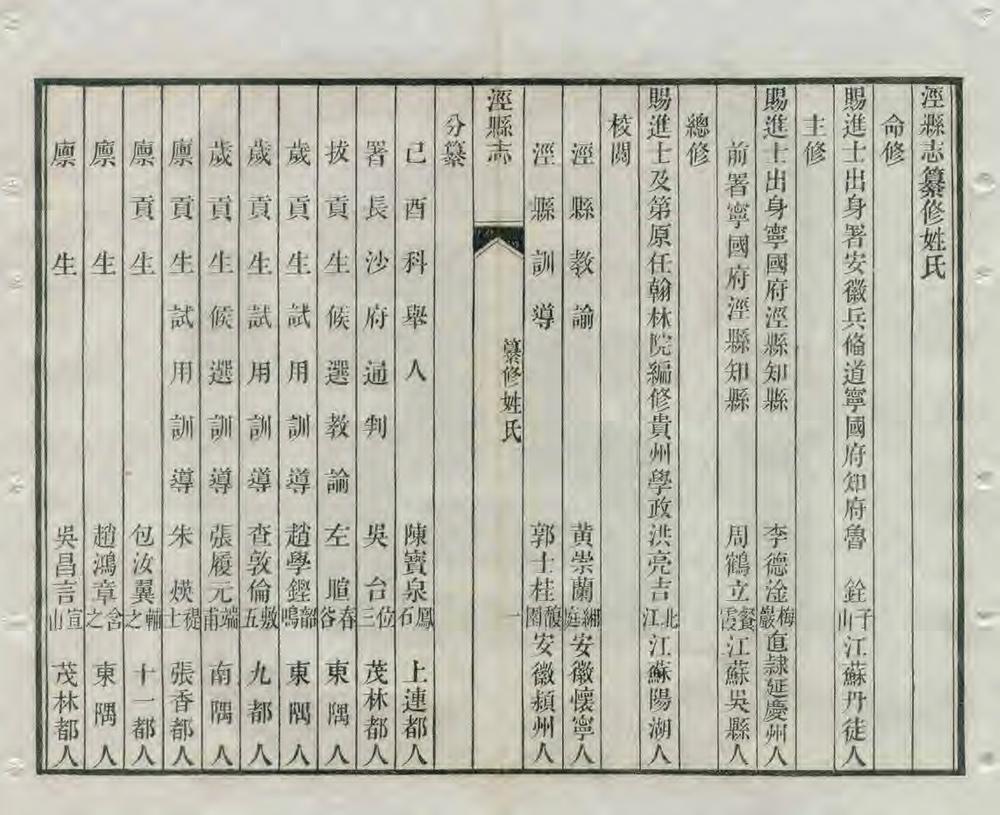 涇縣志纂修姓氏
命修
賜進士出身署安徽兵備道寧國府知府魯銓子山江蘇丹徒人
主修
賜進士出身寧國府涇縣知縣李德淦梅巖直隸延慶州人
前署寧國府涇縣知縣周鶴立餐霞江蘇吳縣人
總修
賜進士及第原任翰林院編修貴州學政洪亮吉北江江蘇陽湖人
校閱
涇縣教諭黃崇蘭緗庭安徽懷寧人
涇縣訓導郭士桂馥園安徽潁州人
涇縣志
纂修姓氏
一
分纂
己酉科舉人陳寶泉鳳石上連都人
署長沙府通判吳台位三茂林都人
拔貢生候選教諭左暄春谷東隅人
歲貢生試用訓導趙學鏗韶鳴東隅人
歲貢生試用訓導查敦倫敷五九都人
歲貢生候選訓導張履元端甫南隅人
廩貢生試用訓導朱煐禔士張香都人
廩貢生包汝翼輔之十一都人
廩生趙鴻章含之東隅人
廩生吳昌言宣山茂林都人